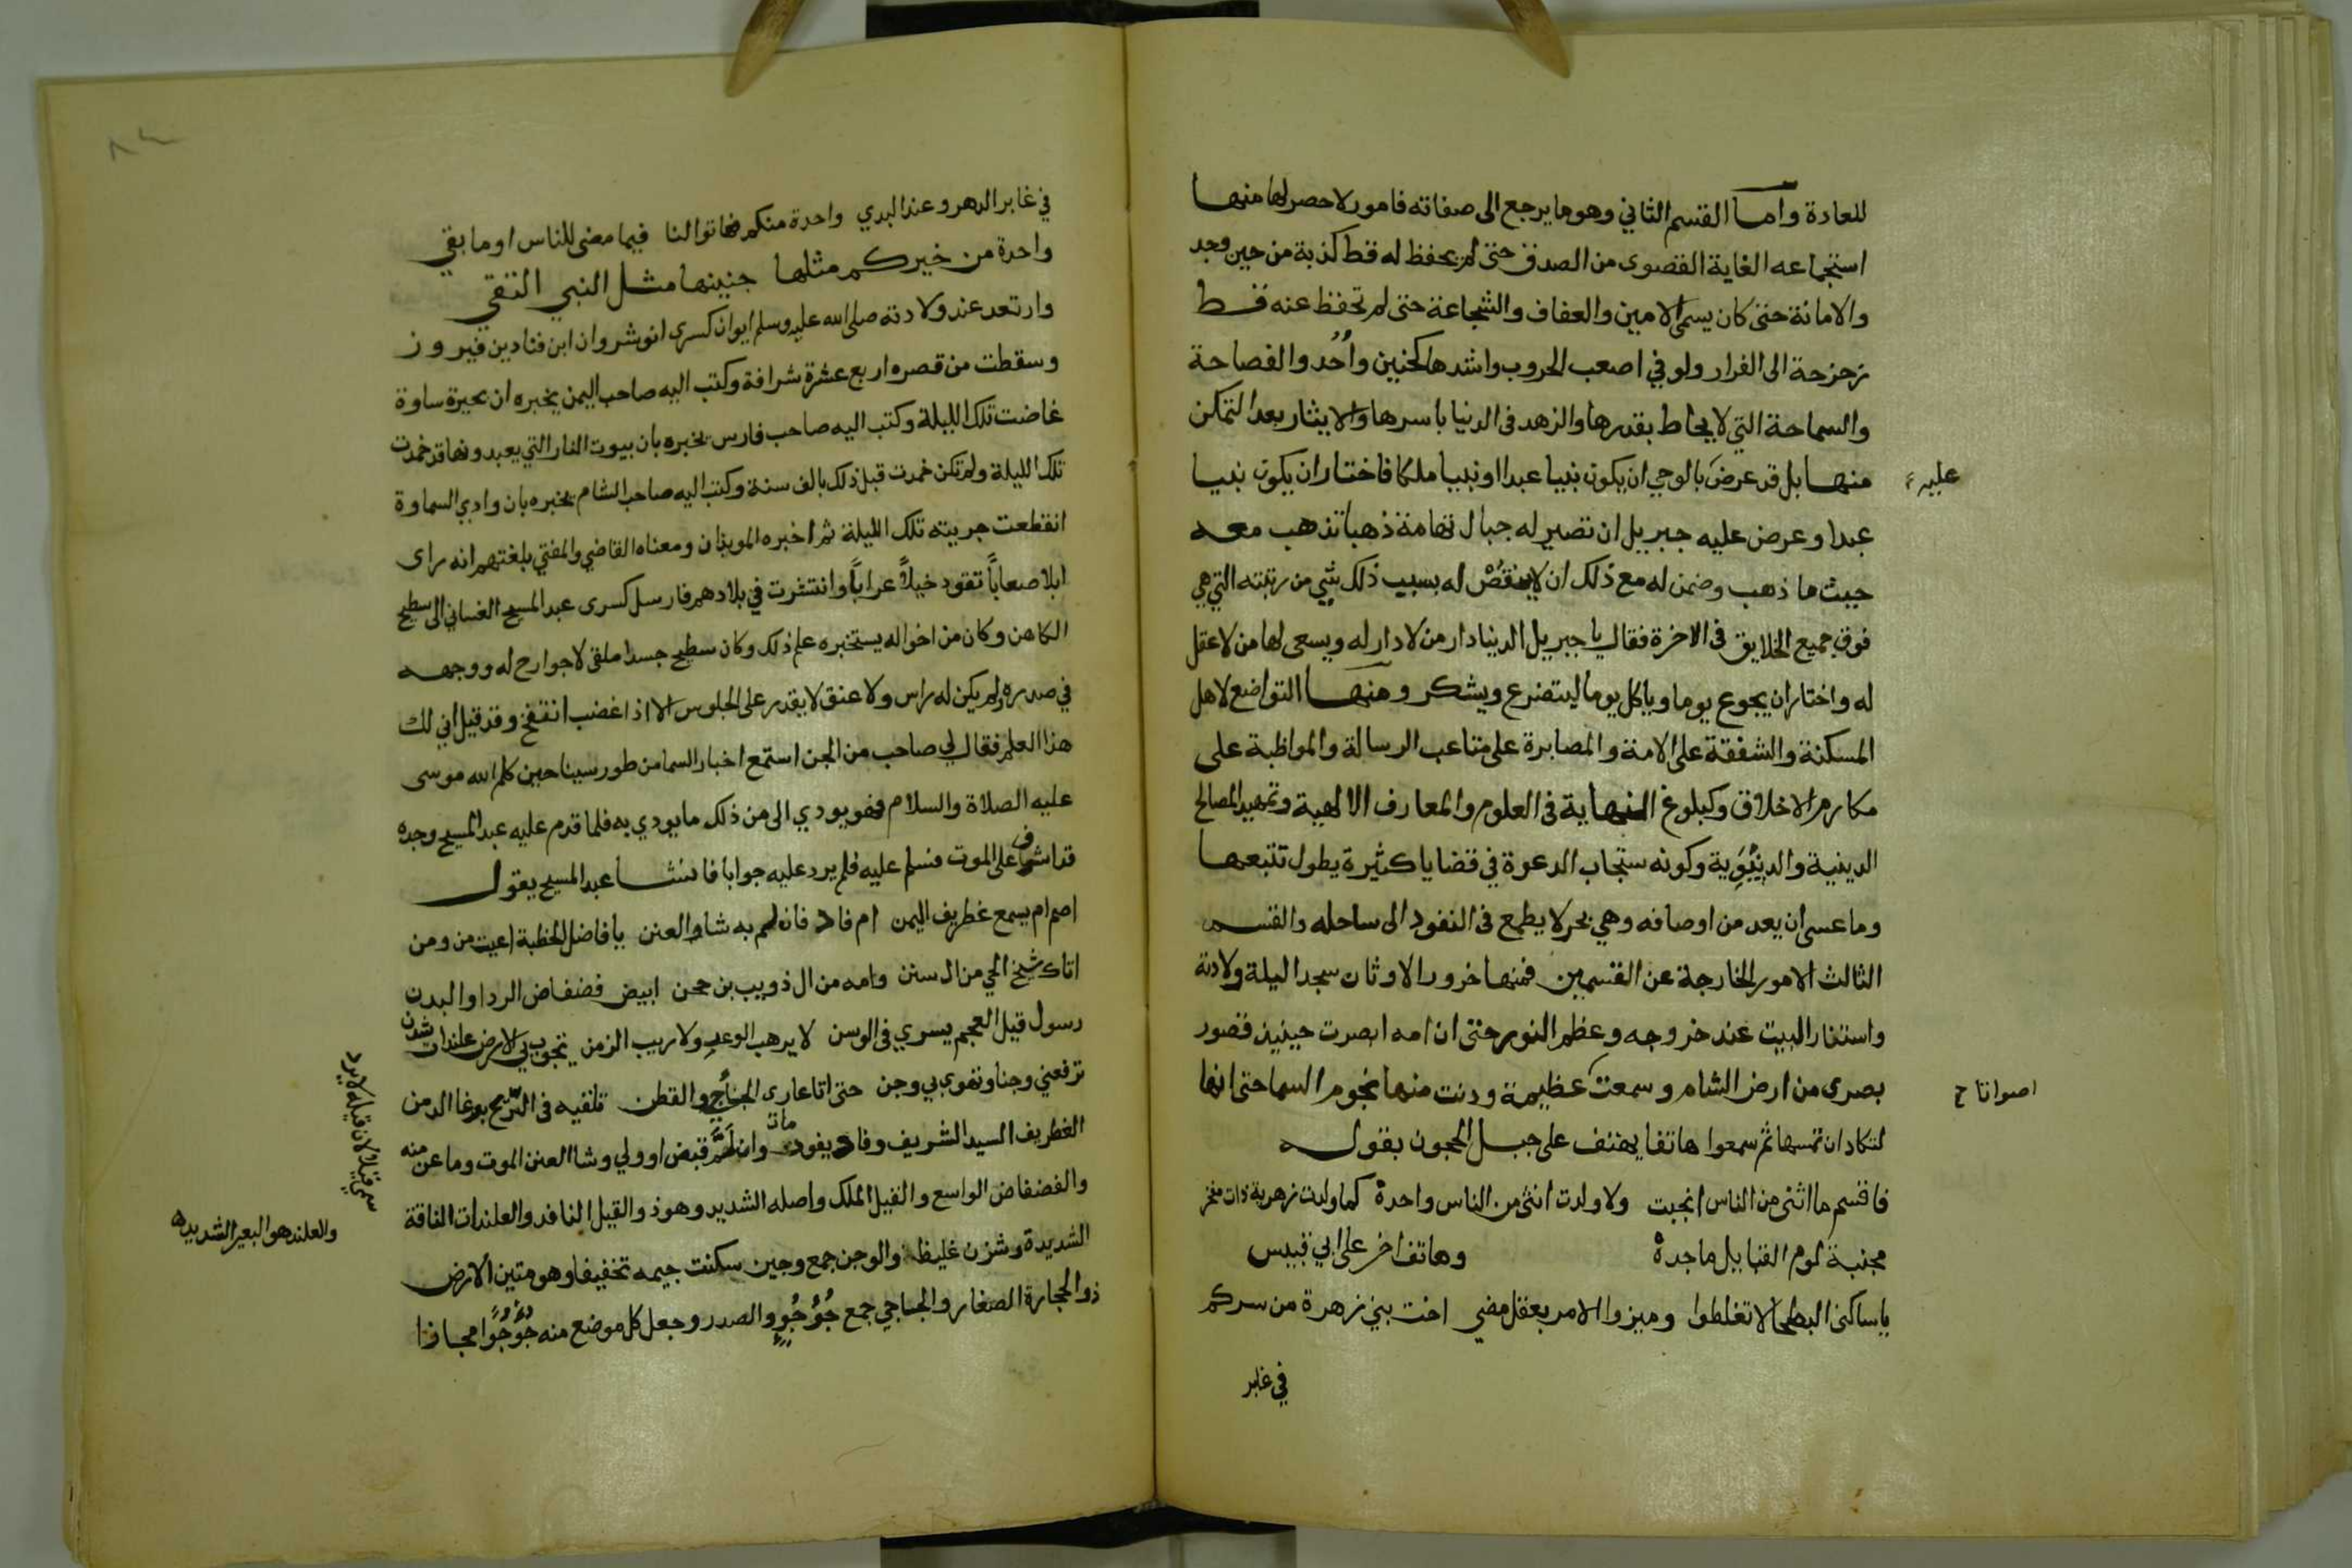 للعادة واما القسم الثاني وهو ما يرجع الى صفاته فامور لا حصر لها منها
استجماعه الغاية القصوى من الصدق حتى لم يحفظ له قط كذبة من حين وجد
والامانة حتى كان يسمى الامين والعفاف والشجاعة حتى لم تحفظ عنه قط
زحزحة الى الفرار ولو في اصعب الحروب واشدها كحنين وأُحُد والفصاحة
والسماحة التي لا يحاط بقدرها والزهد فى الدنيا باسرها والايثار بعد التمكن
منها بل قد عرض بالوحي ان يكون نبيا عبدا او نبيا ملكا فاختار ان يكون نبيا
عليه
عبدا وعرض عليه جبريل ان تصير له جبال تهامة ذهبا تذهب معه
حيث ما ذهب وضمن له مع ذلك ان لا ينقُصْ له بسبب ذلك شي من رتبته التي هي
فوق جميع الخلايق فى الاخرة فقال يا جبريل الدنيا دار من لا دار له ويسعى لها من لا عقل
له واختار ان يجوع يوما وياكل يوما ليتضرع ويشكر ومنها التواضع لاهل
المسكنة والشفقة على الامة والمصابرة على متاعب الرسالة والمواظبة على
مكارم الاخلاق وكبلوغ النهاية فى العلوم والمعارف الالهية وتمهيد المصالح
الدينية والدنيوية وكونه ستجاب الدعوة في قضايا كثيرة يطول تتبعها
وما عسى ان يعد من اوصافه وهي بحر لا يطمع فى النفود الى ساحله والقسم
الثالث الامور الخارجة عن القسمين فمنها خرور الاوثان سجدا ليلة ولادته
واستنار البيت عند خروجه وعظم النور حتى ان امه ابصرت حينيذ قصور
بصرى من ارض الشام وسمعت عظيمة ودنت منها نجوم السما حتى انها
اصواتا ح
لتكاد ان تمسها ثم سمعوا هاتفا يهتف على جبل الحجون بقوله
فاقسم ما انثى من الناس انجبت ولا ولدت انثى من الناس واحدة كما ولدت زهرية ذات مفخر
مجنبة لوم القبايل ماجدة وهاتف اخر على ابي قبيس
يا ساكني البطحا لا تغلطوا وميزوا الامر بعقل مضي اخت بني زهرة من سركم
في غابر
في غابر الدهر وعند البدي واحدة منكم فهاتوا لنا فيما مضى للناس او ما بقي
واحدة من خيركم مثلها جنينها مثل النبي التقي
وارتعد عند ولادته صلى الله عليه وسلم ايوان كسرى انوشروان ابن قباد بن فيروز
وسقطت من قصره اربع عشرة شرافة وكتب اليه صاحب اليمن يخبره ان بحيرة ساوة
غاضت تلك الليلة وكتب اليه صاحب فارس يخبره بان بيوت النار التي يعبدونها قد خمدت
تلك الليلة ولم تكن خمدت قبل ذلك بالف سنة وكتب اليه صاحب الشام يخبره بان وادي السماوة
انقطعت جريته تلك الليلة ثم اخبره الموبذان ومعناه القاضي والمفتي بلغتهم انه راى
ابلا صعاباً تقود خيلاً عراباً وانتشرت في بلادهم فارسل كسرى عبد المسيح الغساني الى سطيح
الكاهن وكان من اخواله يستخبره علم ذلك وكان سطيح جسدا ملقى لا جوارح له ووجهه
في صدره ولم يكن له راس ولا عنق لا يقدر على الجلوس الا اذا غضب انتفخ وقد قيل اني لك
هذا العلم فقال لي صاحب من الجن استمع اخبار السما من طور سينا حين كلم الله موسى
عليه الصلاة والسلام فهو يودي الى من ذلك ما يودي به فلما قدم عليه عبد المسيح وجده
قد اشفى على الموت فسلم عليه فلم يرد عليه جوابا فانشا عبد المسيح يقول
اصم ام يسمع غطريف اليمن ام فاد فازلم به شاو العنن يا فاضل الخطبة اعيت من ومن
اتاك شيخ الحي من ال سنن وامه من ال ذويب بن حجن ابيض فضفاض الردا والبدن
رسول قيل العجم يسري فى الوسن لا يرهب الوعد ولا ريب الزمن تجوب بي الارض علندات شزن
ترفعني وجنا وتهوي بي وجن حتى اتا عارى الجاجي والقطن تلفه فى الريح بوغا الدمن
الغطريف السيد الشريف وفاد يفود مات وازلم قبض او ولي وشا العنن الموت وما عن منه
والفضفاض الواسع والقيل الملك واصله الشديد وهو ذو القيل النافد والعلندات الناقة
سمي قيلا لان قيله لا يرد
والعلند هو البعير الشديد
الشديدة وشزن غليظ والوجن جمع وجين سكنت جيمه تخفيفا وهو متين الارض
ذو الحجارة الصغار والجاجي جمع جُؤْجُؤ والصدر وجعل كل موضع منه جُؤْجُؤًا مجازا